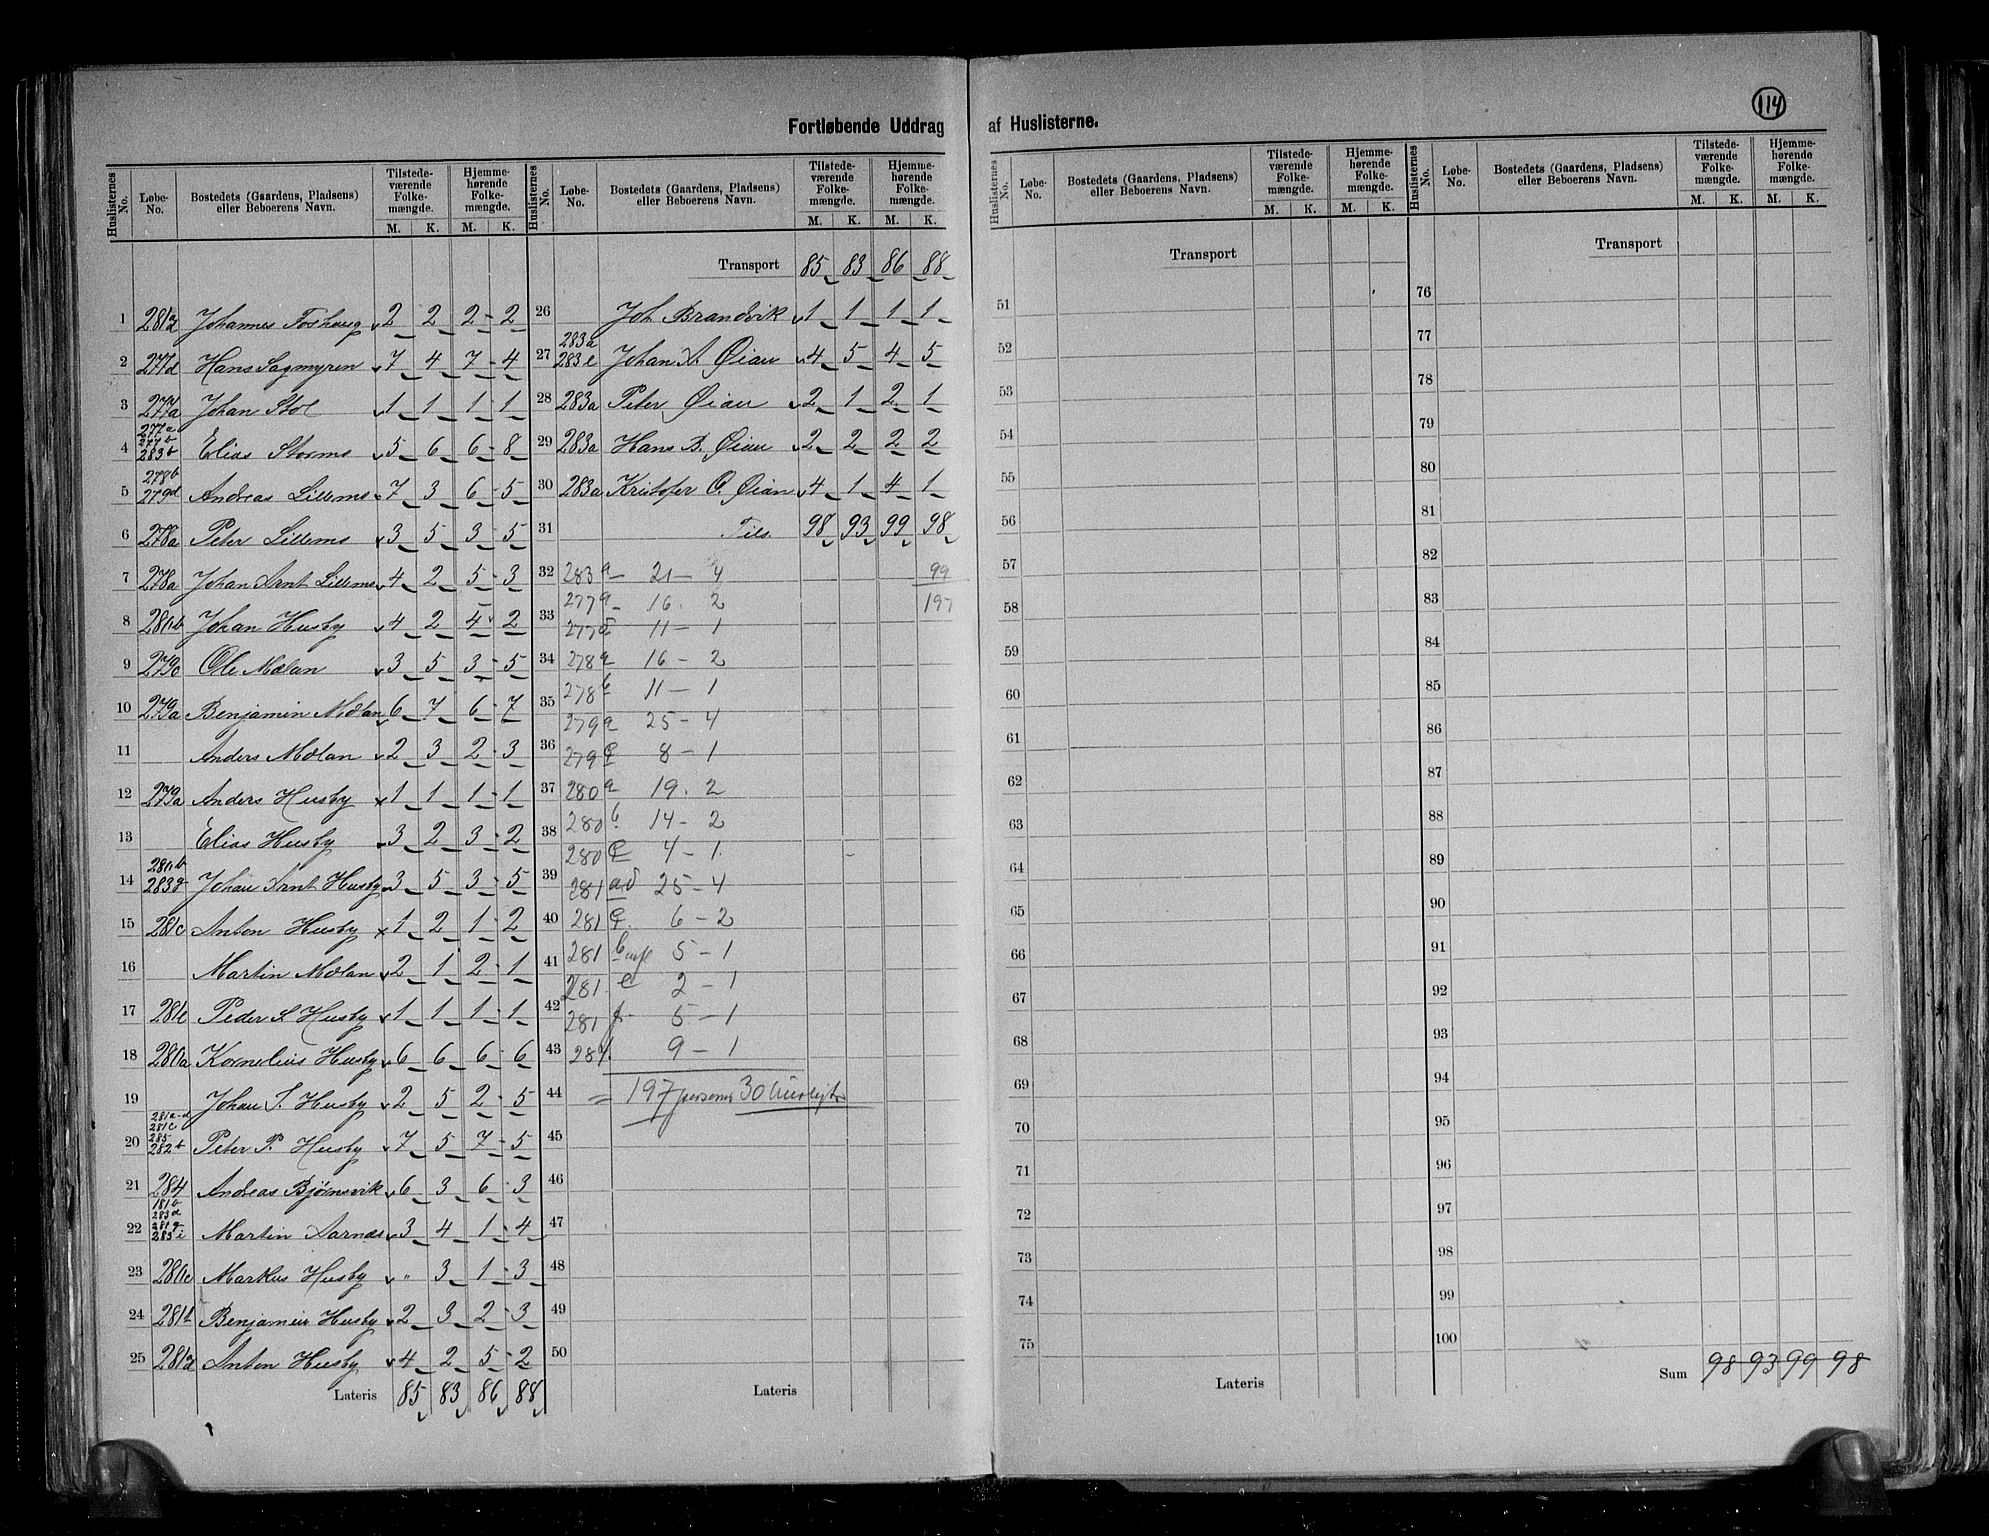 114
Fortløbende Uddrag af Huslisterne.
Huslisternes No. Løbe-No. Bostedets (Gaardens, Pladsens) eller Beboerens Navn. Tilstedeværende Folkemængde. M. K. Hjemmehørende Folkemængde. M. K.
1 281a Johannes Foshaug 2 2 2 2
2 277d Hans Sagmyren 7 4 7 4
3 277a Johan Stol 1 1 1 1
4 277a 277b 283b Elias Stormo 5 6 6 8
5 278b 279d Andreas Lillemo 7 3 6 5
6 278a Peter Lillemo 3 5 3 5
7 278a Johan Arnt Lillemo 4 2 5 3
8 281b Johan Husby 4 2 4 2
9 279c Ole Mølan 3 5 3 5
10 279a Benjamin Mølan 6 7 6 7
11 Anders Mølan 2 3 2 3
12 279a Anders Husby 1 1 1 1
13 Elias Husby 3 2 3 2
14 283g Johan Arnt Husby 3 5 3 5
15 281c Anton Husby 1 2 1 2
16 Martin Mølan 2 1 2 1
17 281e Peder S Husby 1 1 1 1
18 280a Kornelius Husby 6 6 6 6
19 Johan S. Husby 2 5 2 5
20 281a-d 281c 285 282b Peter P. Husby 7 5 7 5
21 284 Andreas Bjørnsvik 6 3 6 3
22 181b 283d 281g 283i Martin Aarnds 3 4 1 4
23 280c Markus Husby " 3 1 3
24 Benjamin Husby 2 3 2 3
25 281a Anton Husby 4 2 5 2
Lateris 85 83 86 88
Huslisternes No. Løbe-No. Bostedets (Gaardens, Pladsens) eller Beboerens Navn. Tilstedeværende Folkemængde. M. K. Hjemmehørende Folkemængde. M. K.
Transport 85 83 86 88
26 Joh Brandvik 1 1 1 1
27 283a 283e Johan A Øian 4 5 4 5
28 283a Peter Øian 2 1 2 1
29 283a Hans B. Øian 2 2 2 2
30 283a Kristofer O. Øian 4 1 4 1
31 Tils. 98 93 99 98
32 283a - 21 - 4 99
277a - 16. 2 197
33 277 11 - 1
34 278a 16 - 2
278b 11 - 1
35 279a 25 - 4
36 279c 8 - 1
37 280a 19. 2
280b. 14 - 2
38 280c 4 - 1.
39 281 ad 25 - 4
40 281 c. 6 - 2
41 281 5 - 1
281. e 2 - 1
42 281 f - 5 - 1
43 284. 9 - 1
44 = 197 personer 30 huslister
45
46
47
48
49
50
Lateris
Huslisternes No. Løbe-No. Bostedets (Gaardens, Pladsens) eller Beboerens Navn. Tilstedeværende Folkemængde. M. K. Hjemmehørende Folkemængde. M. K.
Transport
51
52
53
54
55
56
57
58
59
60
61
62
63
64
65
66
67
68
69
70
71
72
73
74
75
Lateris
Huslisternes No. Løbe-No. Bostedets (Gaardens, Pladsens) eller Beboerens Navn. Tilstedeværende Folkemængde. M. K. Hjemmehørende Folkemængde. M. K.
Transport
76
77
78
79
80
81
82
83
84
85
86
87
88
89
90
91
92
93
94
95
96
97
98
99
100
Sum 98 93 99 98